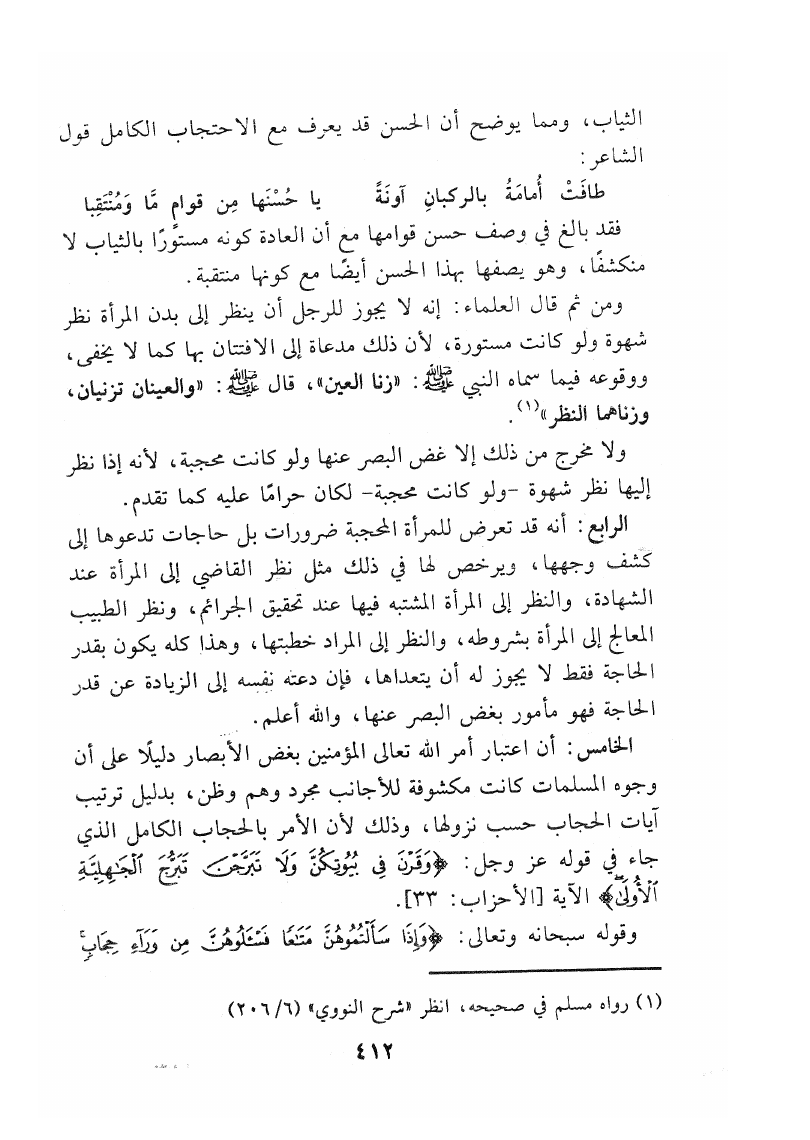 الثياب، ومما يوضح أن الحسن قد يعرف مع الاحتجاب الكامل قول
الشاعر:
طافَتْ أُمامَةُ بالركبانِ آونَةً يا حُسْنَها مِن قوامٍ مَّا وَمُنْتَقِبا
فقد بالغ في وصف حسن قوامها مع أن العادة كونه مستورًا بالثياب لا
منكشفًا، وهو يصفها بهذا الحسن أيضًا مع كونها منتقبة.
ومن ثم قال العلماء: إنه لا يجوز للرجل أن ينظر إلى بدن المرأة نظر
شهوة ولو كانت مستورة، لأن ذلك مدعاة إلى الافتتان بها كما لا يخفى،
ووقوعه فيما سماه النبي ﷺ: «زنا العين»، قال ﷺ: «والعينان تزنيان،
وزناهما النظر»(١).
ولا مخرج من ذلك إلا غض البصر عنها ولو كانت محجبة، لأنه إذا نظر
إليها نظر شهوة -ولو كانت محجبة- لكان حرامًا عليه كما تقدم.
الرابع: أنه قد تعرض للمرأة المحجبة ضرورات بل حاجات تدعوها إلى
كشف وجهها، ويرخص لها في ذلك مثل نظر القاضي إلى المرأة عند
الشهادة، والنظر إلى المرأة المشتبه فيها عند تحقيق الجرائم، ونظر الطبيب
المعالج إلى المرأة بشروطه، والنظر إلى المراد خطبتها، وهذا كله يكون بقدر
الحاجة فقط لا يجوز له أن يتعداها، فإن دعته نفسه إلى الزيادة عن قدر
الحاجة فهو مأمور بغض البصر عنها، والله أعلم.
الخامس: أن اعتبار أمر الله تعالى المؤمنين بغض الأبصار دليلًا على أن
وجوه المسلمات كانت مكشوفة للأجانب مجرد وهم وظن، بدليل ترتيب
آيات الحجاب حسب نزولها، وذلك لأن الأمر بالحجاب الكامل الذي
جاء في قوله عز وجل: ﴿وَقَرْنَ فِي بُيُوتِكُنَّ وَلَا تَبَرَّجْنَ تَبَرُّجَ ٱلْجَٰهِلِيَّةِ
ٱلْأُولَىٰ﴾ الآية [الأحزاب: ٣٣].
وقوله سبحانه وتعالى: ﴿وَإِذَا سَأَلْتُمُوهُنَّ مَتَٰعًا فَسْـَٔلُوهُنَّ مِن وَرَآءِ حِجَابٍ
(١) رواه مسلم في صحيحه، انظر «شرح النووي» (٢٠٦/٦)
٤١٢